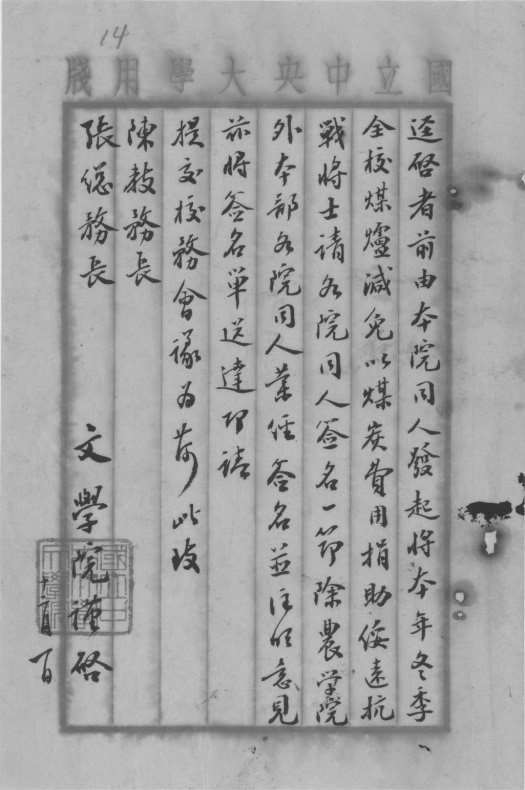 14
國立中央大學用牋
逕啓者前由本院同人發起將本年冬季
全校煤爐減免以煤炭費用捐助綏遠抗
戰將士請各院同人簽名一節除農學院
外本部各院同人業經簽名並注明意見
茲將簽名單送達即請
提交校務會議為荷此致
陳教務長
張總務長
文學院謹啓
十一月